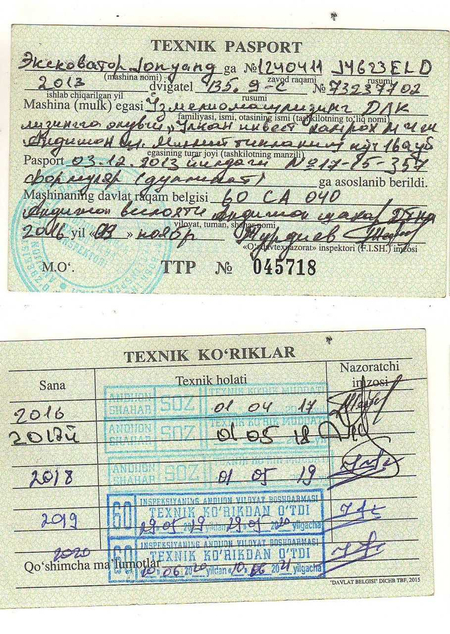 TEXNIK PASPORT
Экскаватор Jonyang ga № 1240411 J4623ELD
(mashina nomi) zavod raqami rusumi
2013 dvigatel 135.9-C № 73237702
ishlab chiqarilgan yil rusumi
Mashina (mulk) egasi Ўзмериомашлизинг ДЛК
familiyasi, ismi, otasining ismi (tashkilotning to'liq nomi)
лизингга олувчи
Андижон
egasining turar joyi (tashkilotning manzili)
Pasport 03.12.2013 йилдаги № 17-85-357
формуляр (дупликат) ga asoslanib berildi.
Mashinaning davlat raqam belgisi 60 CA 040
Андижон вилояти Андижон шахар
viloyat, tuman, shahar nomi
2016 yil «03» ноябр
"O'zdavtexnazorat" inspektori (F.I.SH.) imzosi
M.O'. TTP № 045718
TEXNIK KO'RIKLAR
Sana Texnik holati Nazoratchi imzosi
ANDIJON SHAHAR SOZ
2016 01 04 17
ANDIJON SHAHAR SOZ
2017й 01 05 18
ANDIJON SHAHAR SOZ
2018 01 05 19
60 INSPEKSIYANING ANDIJON VILOYAT BOSHQARMASI
TEXNIK KO'RIKDAN O'TDI
2019 29.05 2019 yildan 29.05 2020 yilgacha
60 INSPEKSIYANING ANDIJON VILOYAT BOSHQARMASI
2020 TEXNIK KO'RIKDAN O'TDI
Qo'shimcha ma'lumotlar 10.06.2020 yildan 10.06 2021 yilgacha
"DAVLAT BELGISI" DICHB TRF, 2015